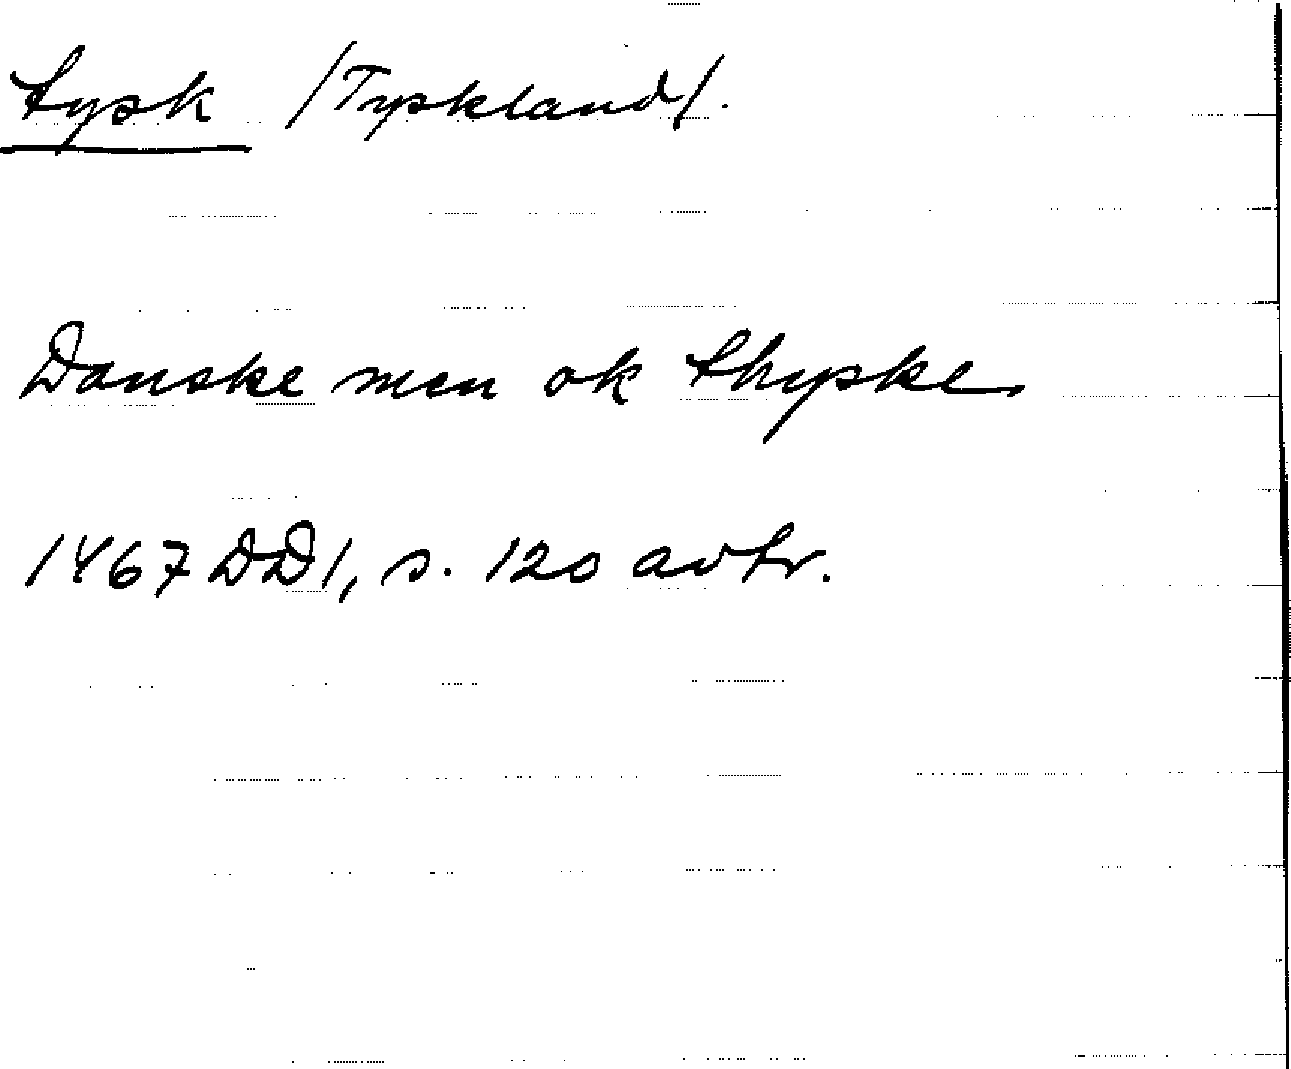 tysk /Tyskland/.
Danske men ok thyske
1467 DD1, s. 120 avtr.